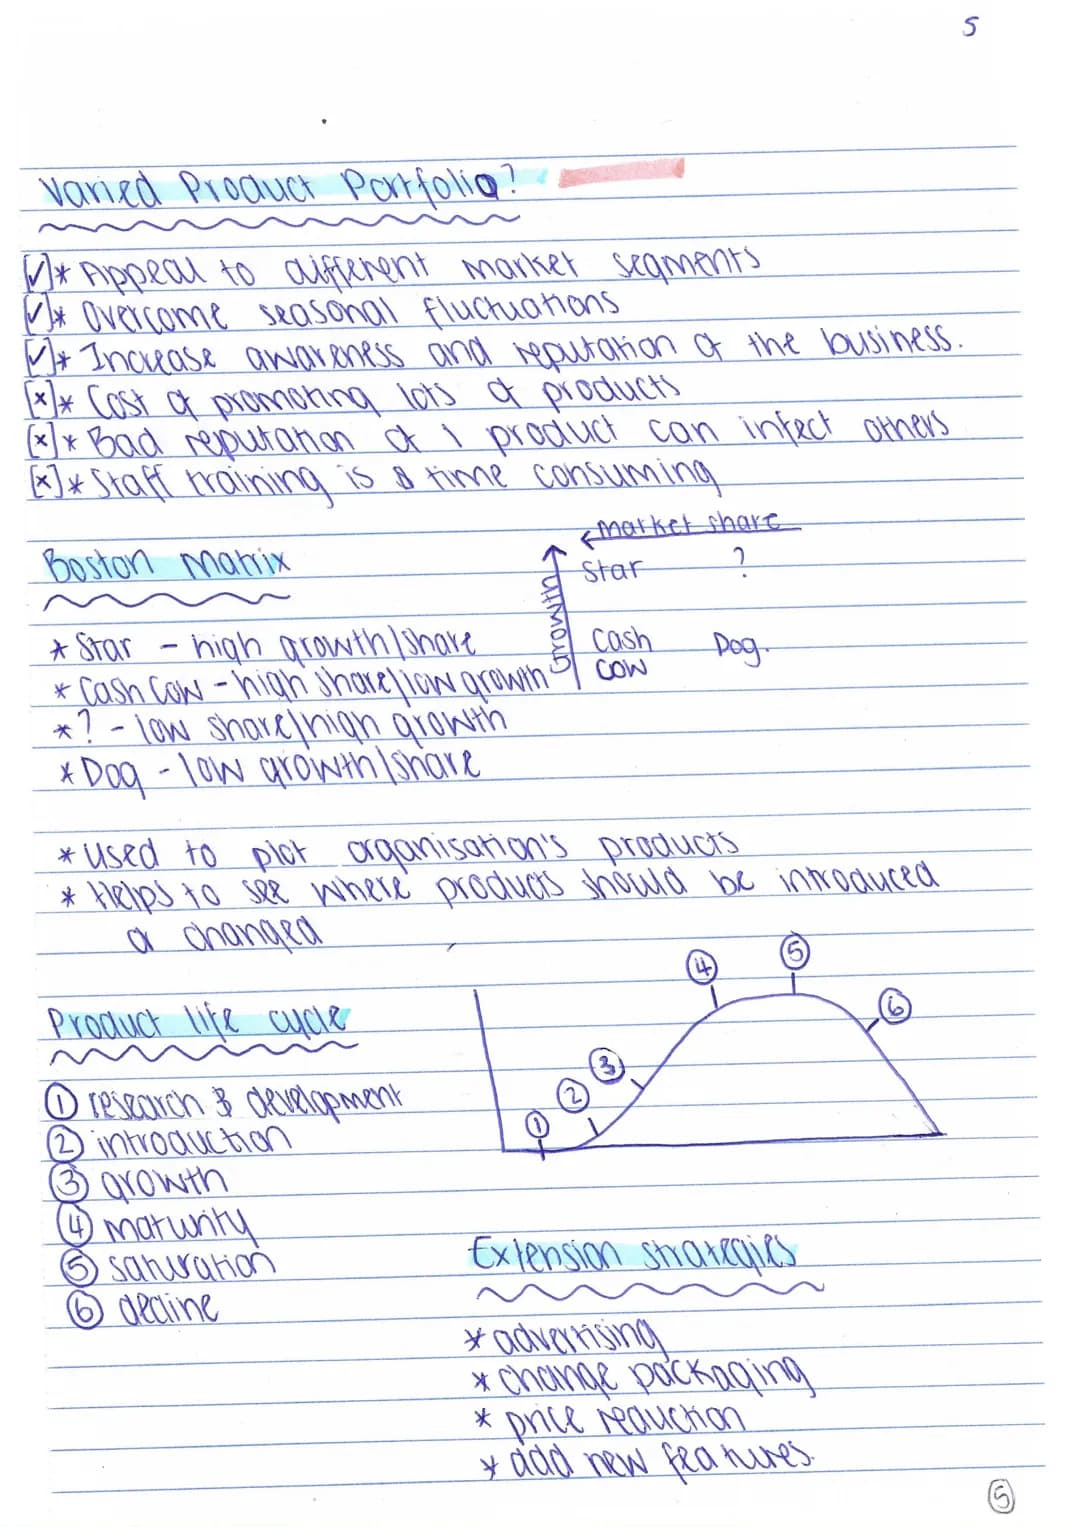 5
Varied Product Portfolio?
[✓]* Appeal to different market segments
[✓]* Overcome seasonal fluctuations
[✓]* Increase awareness and reputation of the business.
[x]* Cost of promoting lots of products
[x]* Bad reputation of 1 product can infect others
[x]* Staff training is time consuming
Boston Matrix
← market share
Growth
Star ?
Cash Cow Dog.
* Star - high growth/share
* Cash Cow - high share/low growth
* ? - low share/high growth
* Dog - low growth/share
* used to plot organisation's products
* Helps to see where products should be introduced
or changed
Product life cycle
① research & development
② introduction
③ growth
④ maturity
⑤ saturation
⑥ decline
① ② ③ ④ ⑤ ⑥
Extension strategies
* advertising
* change packaging
* price reduction
* add new features.
⑤